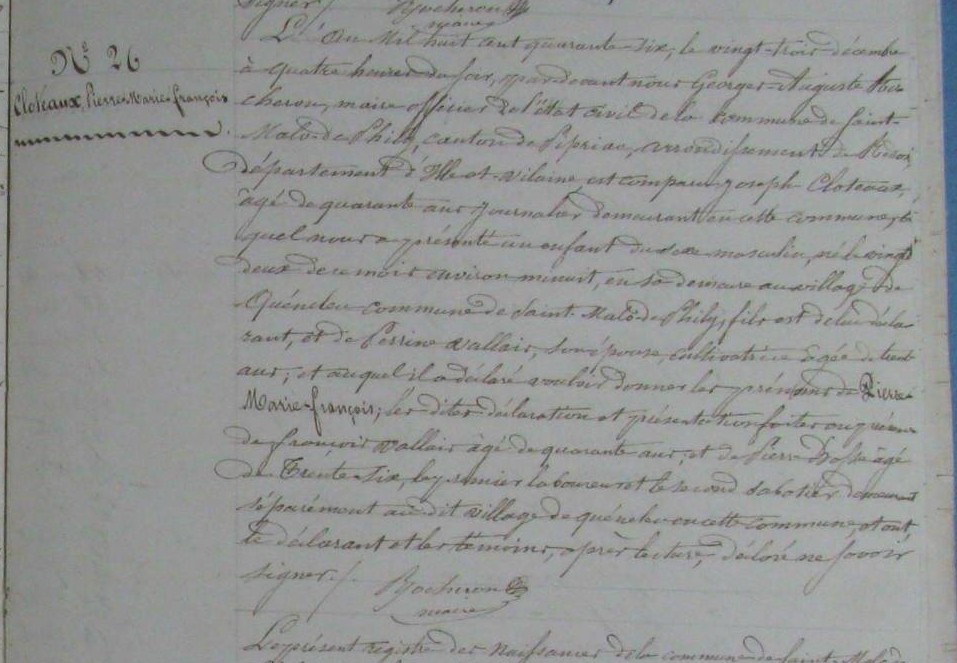 signer /. Rocheron
maire
N° 26
Cloteaux, Pierre-Marie-françois
L'An Mil huit cent quarante-six, le vingt-trois décembre
à quatre heures du soir, pardevant nous Georges-Auguste Ro-
cheron, maire officier de l'état civil de la commune de Saint-
Malo-de-Phily, canton de Pipriac, arrondissement de Redon,
département d'Ille-et-vilaine, est comparu Joseph Cloteaux,
âgé de quarante ans Journalier demeurant en cette commune, le
quel nous a présenté un enfant du sexe masculin, né le vingt
deux de ce mois environ minuit, en sa demeure au village de
Quéneleu commune de Saint-Malo-de-Phily, fils est de lui décla
rant, et de Perrine vallais, son épouse, cultivatrice âgée de trent
ans; et auquel il a déclaré vouloir donner les prénoms de Pierre-
Marie-françois; les dites déclaration et présentation faites en présence
de françois vallais âgé de quarante ans, et de Pierre âgé
de Trente-six, le premier laboureur et le second sabotier demeurant
séparément au dit village de quéneleu en cette commune, et ont,
le déclarant et les témoins, après lecture, déclaré ne savoir
signer /. Rocheron
maire
Le présent registre des naissances de la commune de Saint-Malo-de